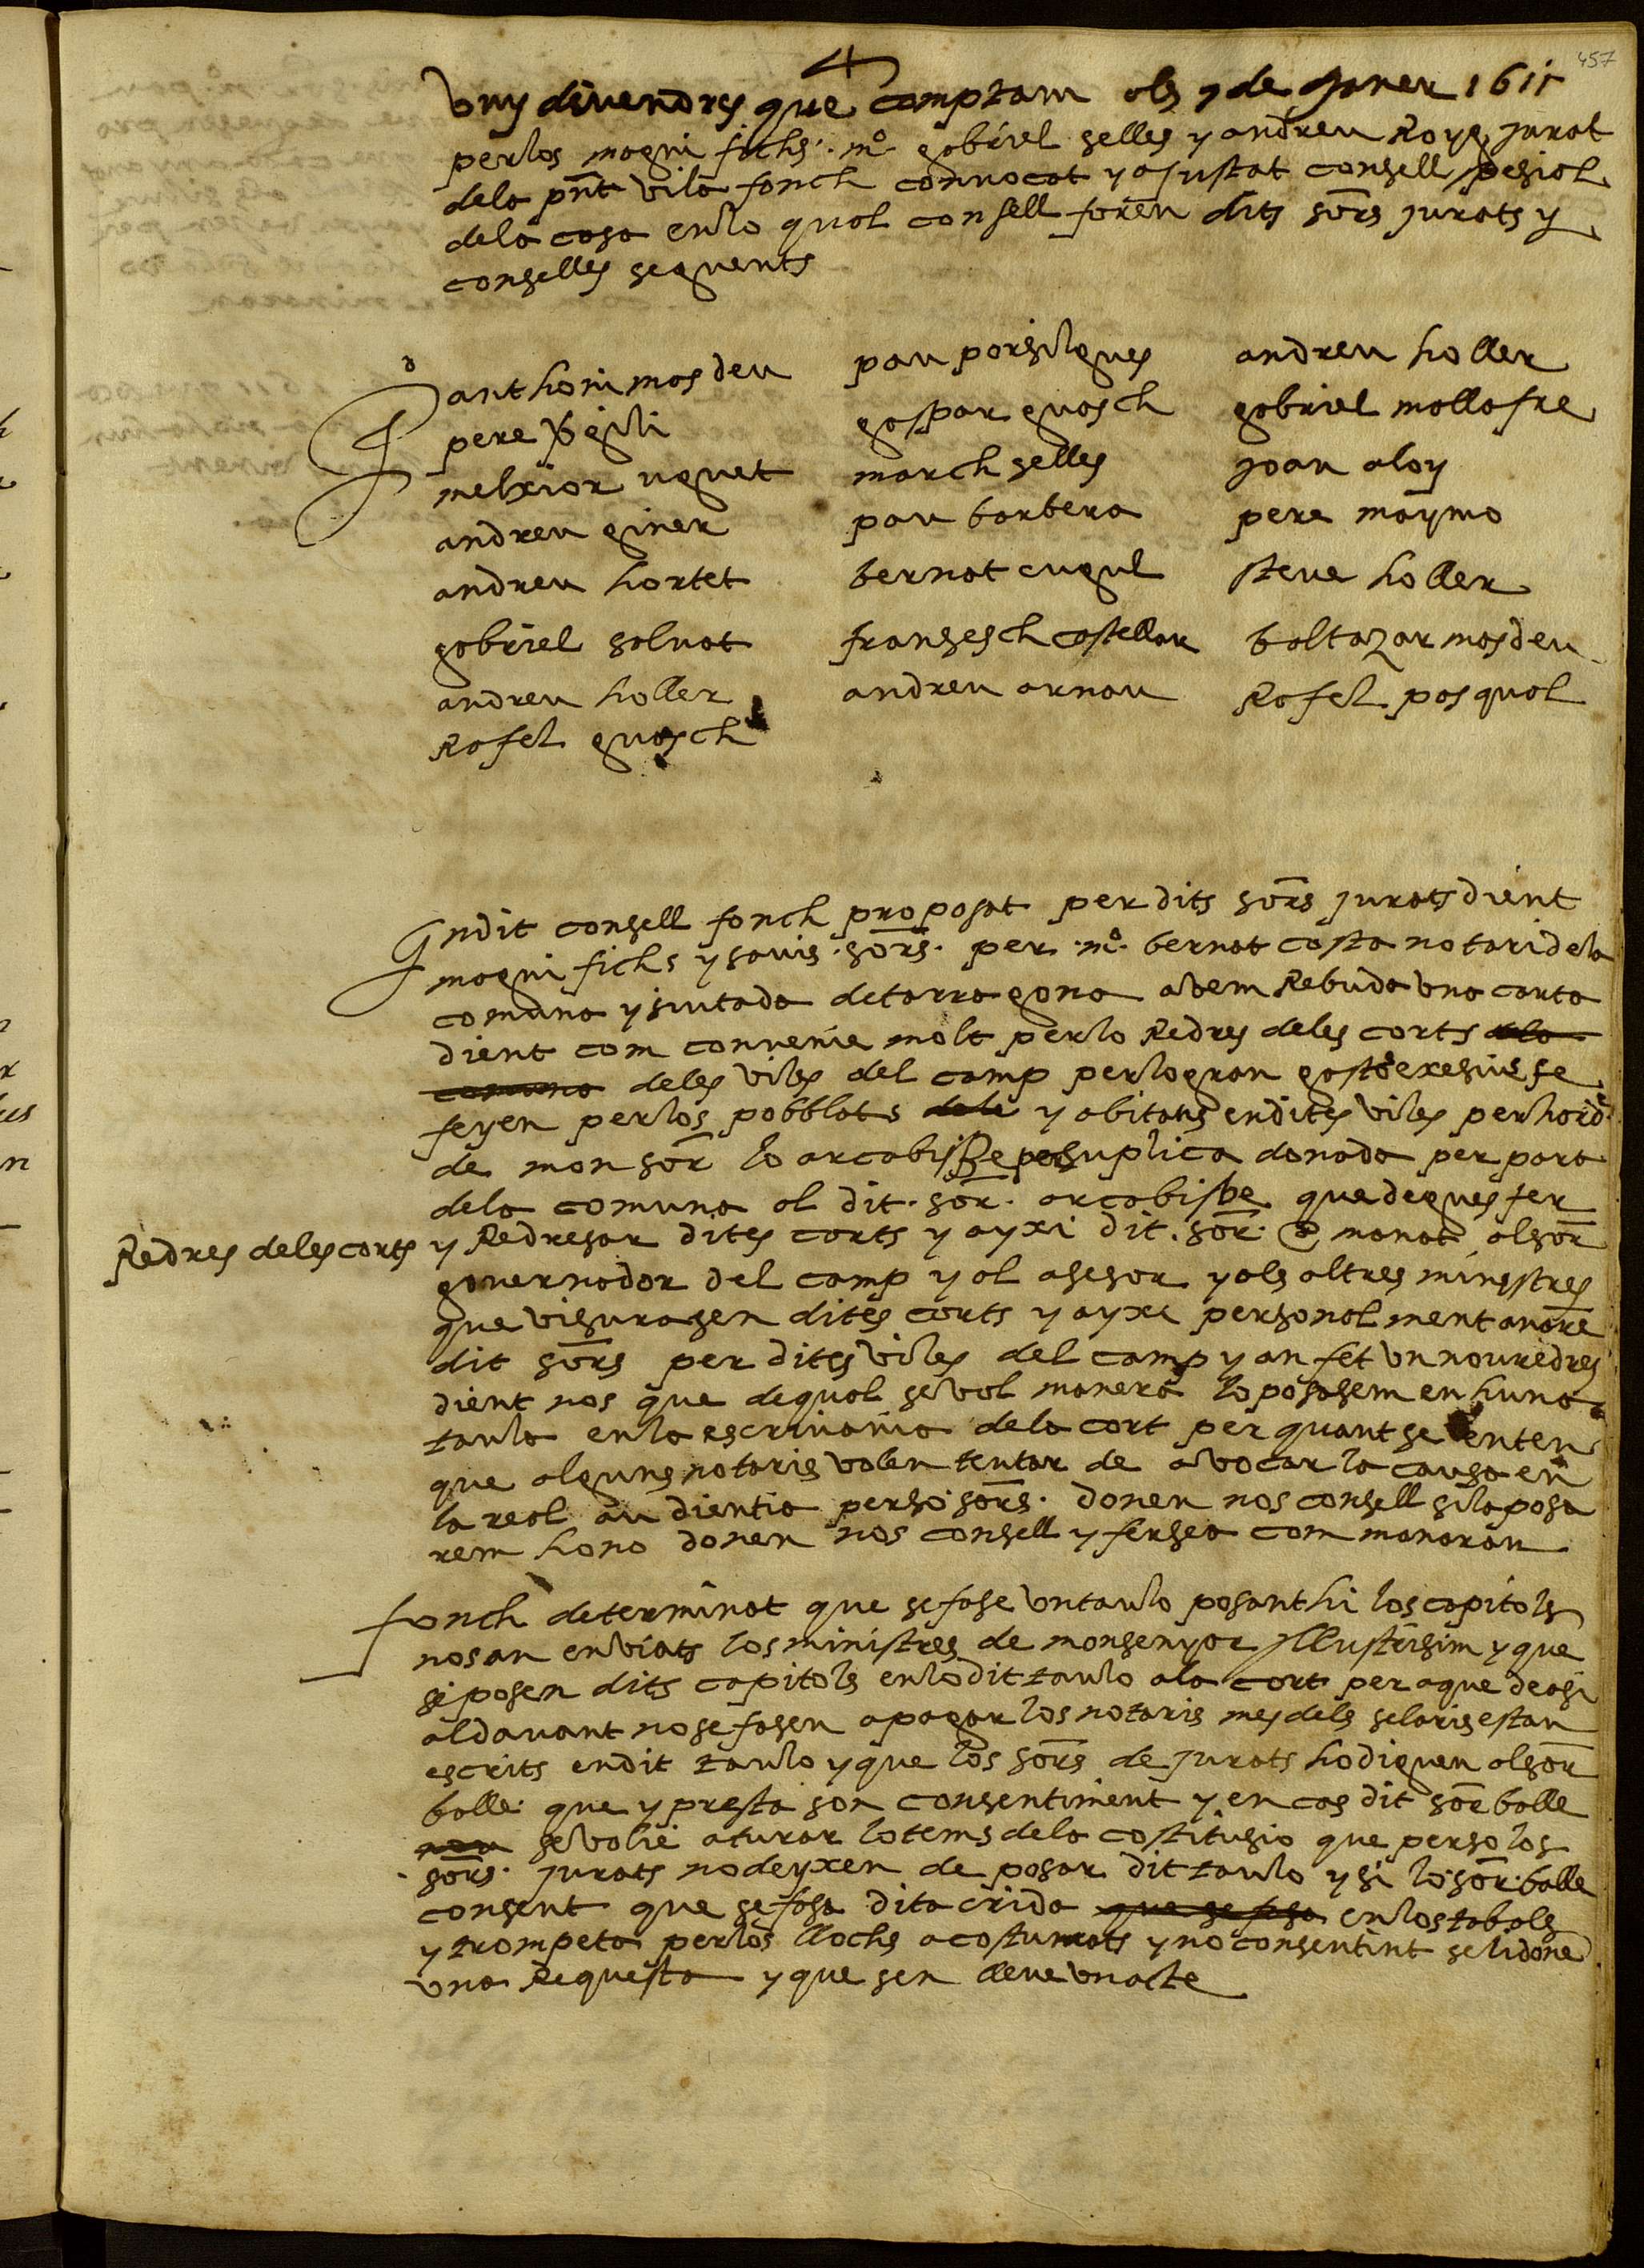 457
vuy divendres que comptam als 7 de Janer 1611
perlos magnifichs .mº. gabriel selles y andreu Royg jurat
dela pnt vila fonch convocat y ajustat consell pesial
dela casa enlo qual consell foren dits sors jurats y
conselles seguents
anthoni masdeu
pere gili
melxior uguet
andreu giner
andreu hortet
gabriel salvat
andreu holler
Rafel guasch
pau porsilgues
gaspar guasch
march selles
pau barbera
bernat cugul
fransesch castellar
andreu arnau
andreu holler
gabriel mallafre
joan aloy
pere maymo
steve holler
baltazar masdeu
Rafel pasqual
Endit consell fonch proposat per dits sors jurats dient
magnifichs y savis .sors. per .mº. bernat casta notari dela
comuna y siutada de tarragona avem Rebuda una carta
dient com convenie molt perlo Redres deles corts dela
comuna deles viles del camp perlo gran gasto exesius se
feyen perlos pobblats dela y abitans endites viles per hord
de mon sor lo arcabisbe per suplica donada per part
dela comuna al dit .sor. arcabisbe que degues fer
Redres deles corts
y Redresar dites corts y ayxi dit .sor. a manat alsor
governador del camp y al asesor y als altres minystres
que visurasen dites corts y ayxi personalment anare
dit sors per dites viles del camp y an fet un nou redres
dient nos que de qual sevol manera lo posasem en huna
taula enla escrivania dela cort per quant se enten
que alguns notaris volen tentar de avocar la causa en
la real audientia perso sors. donen nos consell sila posa
rem hono donen nos consell y ferse a com manaran
fonch determinat que se fase un taulo posant hi los capitols
nos an enviats los ministres de monsenyor Illustrisim y que
si posen dits capitols enlo dit taulo a la cort per a que de asi
al davant nose fasen apagar los notaris mes dels selaris estan
escrits endit taulo y que los sors de jurats ho diguen alsor
balle que y presta son consentiment y en cas dit sor balle
nou se volie aturar lo tems dela costitusio que perso los
sors. jurats no deyxen de posar dit taulo y si lo sor. balle
consent que se fasa dita crida que se fasa enlos tabals
y trompeta perlos llochs acostumats y no consentint se li done
una Requesta y que sen lleve un acte